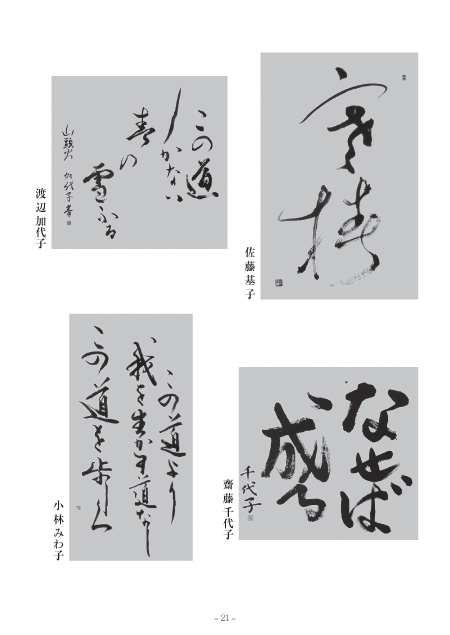 寒椿
佐藤基子
この道
しかない
春の
雪ふる
山頭火 加代子書
渡辺加代子
なせば
成る
千代子
齋藤千代子
この道より
我を生かす道なし
この道を歩く
小林みわ子
– 21 –